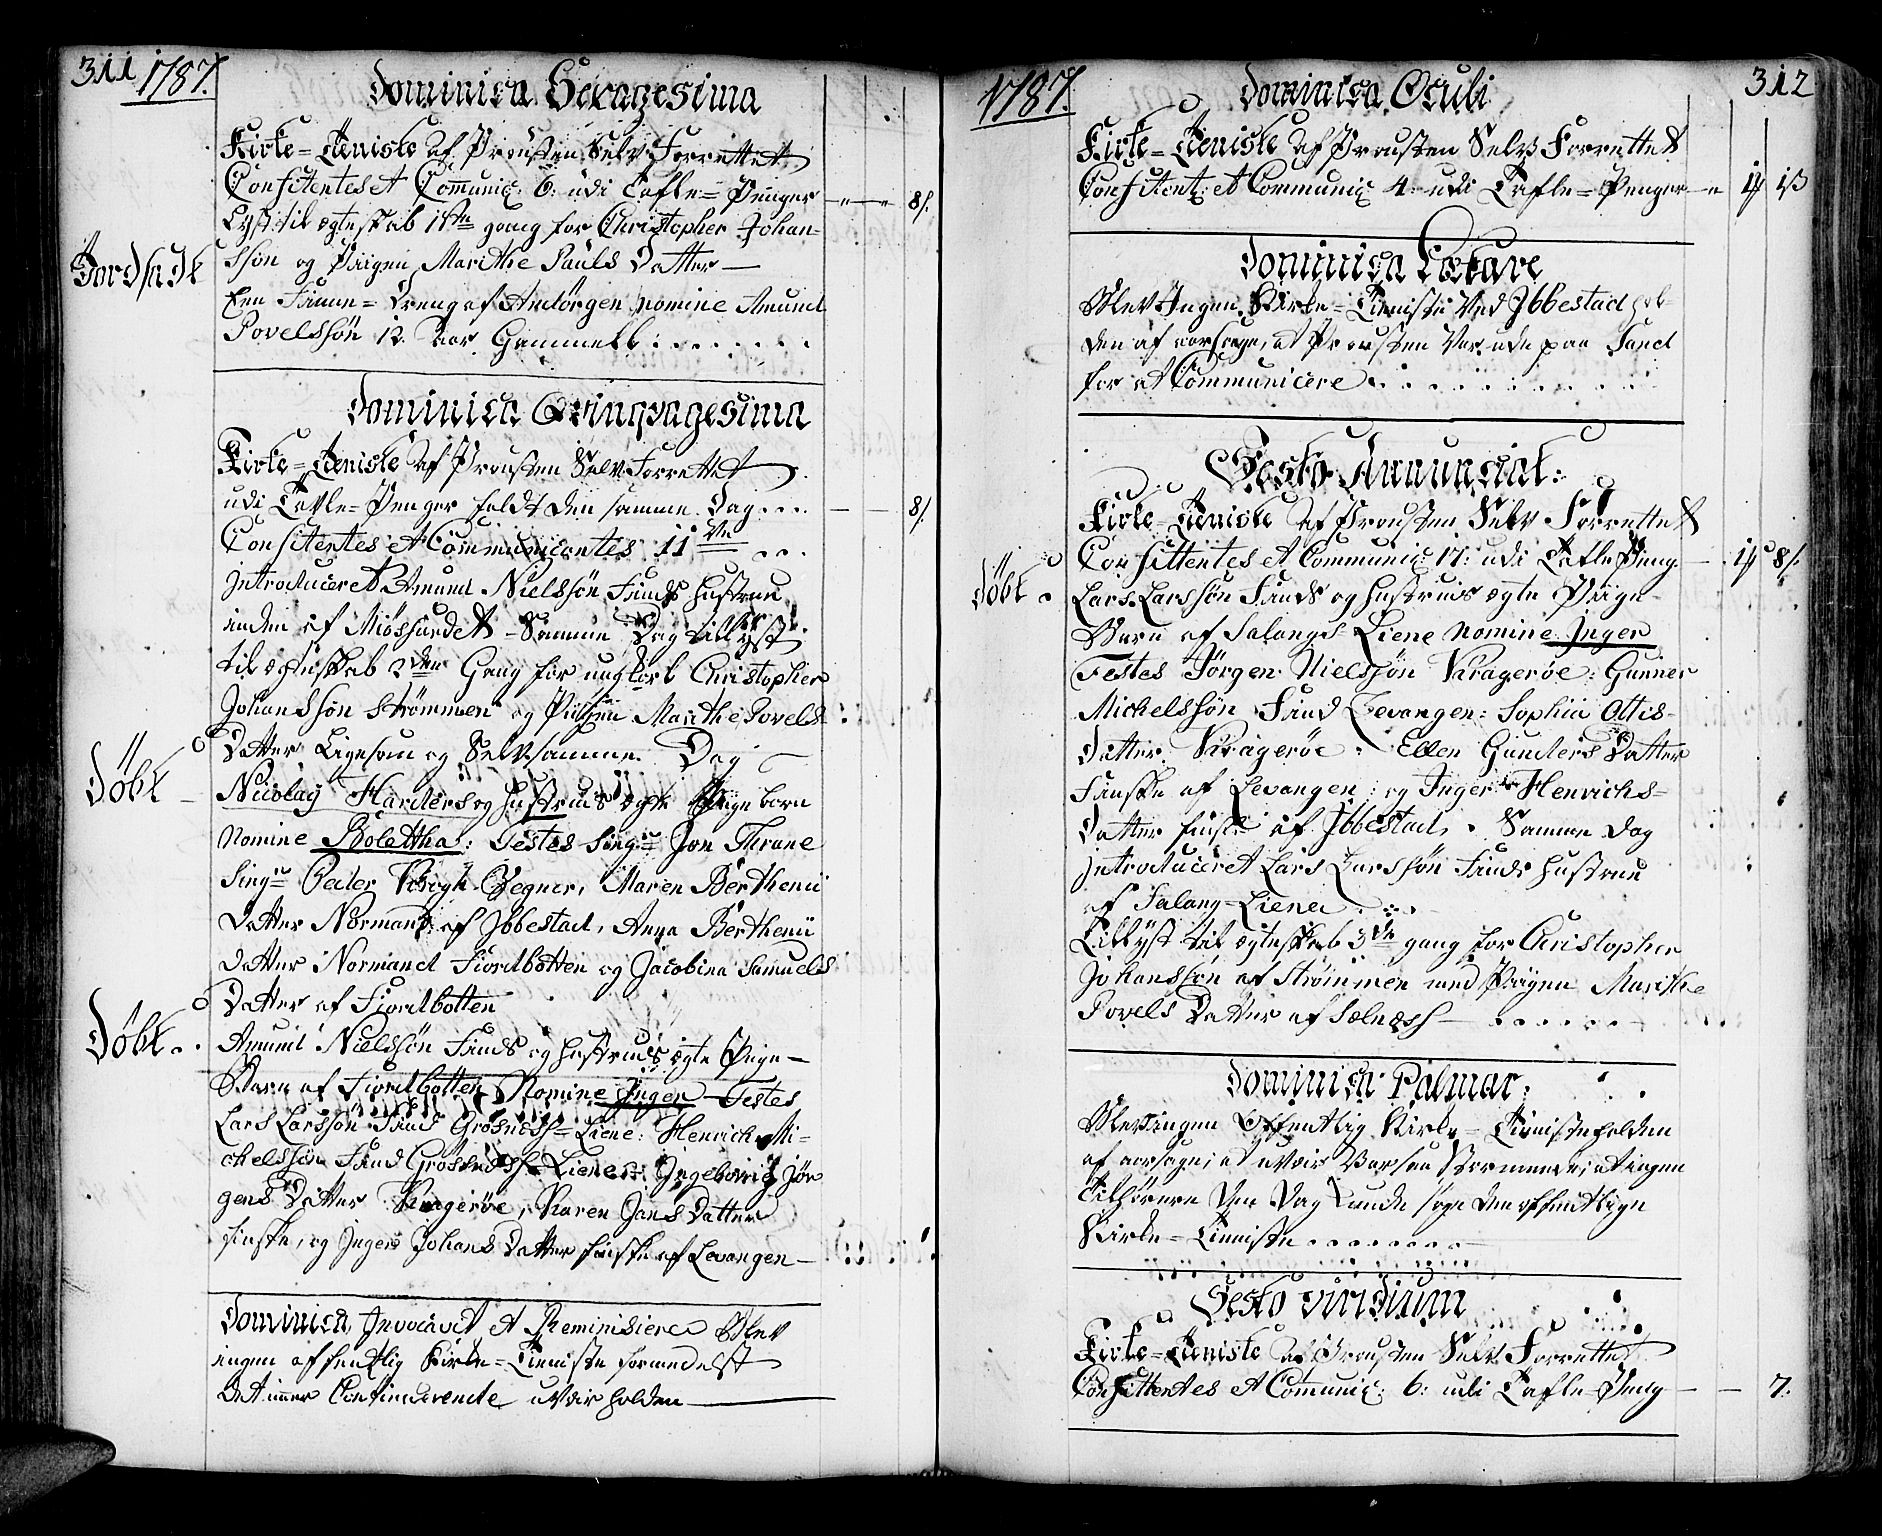 311 1787.
Dominica Sexagesima
Kirke=Tieniste af Prousten Selv Forrettet
Confitentes et Communic: 6: udi Tafle=Penger 8/.
Lyst til ægteskab 1ste gang for Christopher Johan-
ssøn og Piigen Marithe Pauls Datter —
Jordsadt
Een Finne=Dreng af nomine Amund
Povelssøn 12 Aar Gammell
Dominica Qvinqvagesima
Kirke=Tieniste af Prousten Selv Forrettet
udi Tavle=Penger faldt den samme Dag 8/.
Confitentes et Communicantes 11
Introduceret Amund Nielssøn Finds hustrue
inden af Miøssundet – Samme Dag tillyst
til ægteskab 2den Gang for ungkarl Christopher
Johanssøn Strømmen og Piigen Marithe Povels
Datter Ligesom og Selvsamme Dag
Døbt
Nicolay Harders og hustrues ægte Piige born
Nomine Bolettha: Testes Singr Jon Thrane
Singr Peder Krogh Wegner, Maren Berthenii
Datter Normand af Ibbestad, Anna Berthenii
Datter Normand Fiordbotten og Jacobina Samuels
Datter af Fiordbotten
Døbt
Amund Nielssøn Finds og hustrues ægte Piige-
Barn af Fiordbotten Nomine Inger Testes
Lars Larssøn Find Grosness=Liene: Henrich Mi-
chelssøn Find Grosness=Liene: Ingeborrig Jør
gens Datter Kragerøe, Karen Jans Datter
finske, og Inger Johans Datter finske af Levangen —
Dominica Invocavit et Reminiscere Blev
ingen offentlig Kirke=Tieniste formedelst
det immer Continuerende uveir holden
1787. 312
Dominica Oculi
Kirke=Tieniste af Prousten Selv Forrettet
Confitent: et Communic: 4: udi Tafle=Penger
Dominica Lætare
Blev Ingen Kirke=Tieniste ved Ibbestad hol-
den af aarsage, at Prousten var ude paa Sand
for at Communicere
Festo Annunciat:
Kirke=Tieniste af Prousten Selv Forrettet
Confittentes et Communic: 17: udi Tafle Peng 8/.
Døbt
Lars Larssøn Finds og hustrues ægte Piige-
Barn af Salangs Liene nomine Inger
Testes Jørgen Nielssøn Kragerøe: Gunner
Michelssøn Find Levangen: Sophia Ottis-
Datter Kragerøe: Ellen Gunders Datter
Finske af Levangen: og Inger Henrichs-
Datter finske af Ibbestad. Samme Dag
Introduceret Lars Larssøn Finds hustrue
af Salang-Liene
Tillyst til ægteskab 3de gang for Christopher
Johanssøn af Strømmen med Piigen Marithe
Povels Datter af Sælness
Dominica Palmar:
Blev ingen Offentlig Kirke=Tieniste holden
af aarsage, at uveir Var saa Stormende, at ingen
Tilhørere Den Dag kunde søge den offentlige
Kirke=Tieniste
Festo viridium
Kirke=Tieniste af Prousten Selv Forrettet
Confittentes et Communic: 6: udi Tafle-Peng 7.